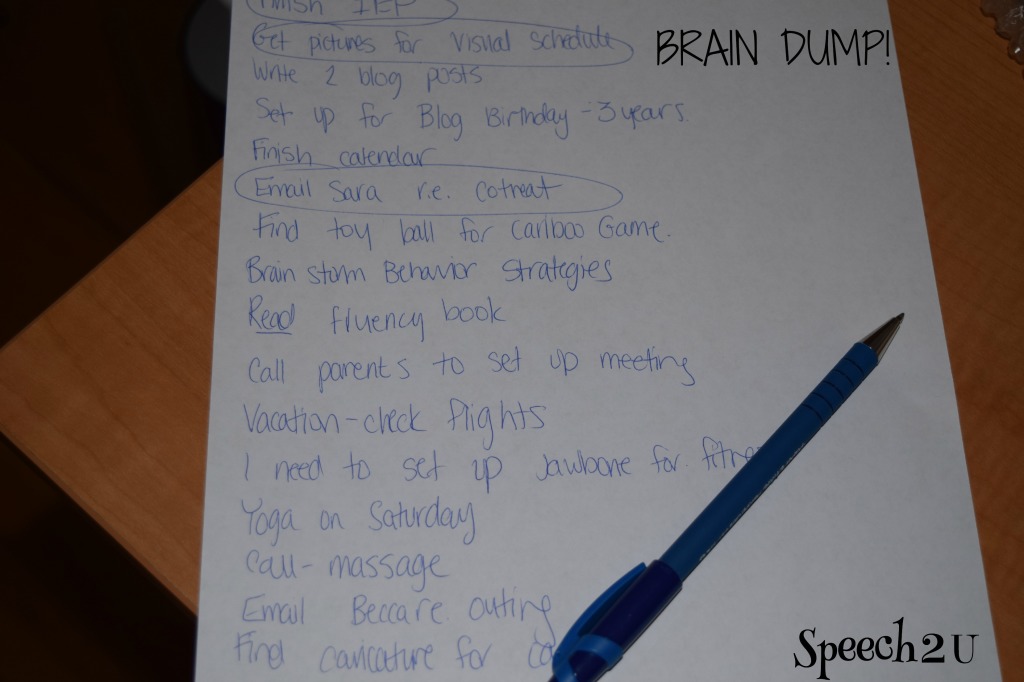 Finish IEP
Get pictures for visual schedule
BRAIN DUMP!
Write 2 blog posts
Set up for Blog Birthday - 3 years.
Finish calendar
Email Sara r.e. cotreat
Find toy ball for Cariboo Game.
Brain storm Behavior strategies
Read fluency book
Call parents to set up meeting
Vacation-check flights
I need to set up Jawbone for
Yoga on Saturday
Call- massage
Email Becca re. outing
Find caricature for
Speech2U